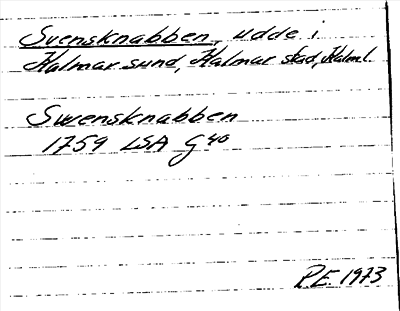 Svensknabben, udde i
Kalmar sund, Kalmar stad, Kalm l.
Swensknabben
1759 LSA G 40
P.E. 1973